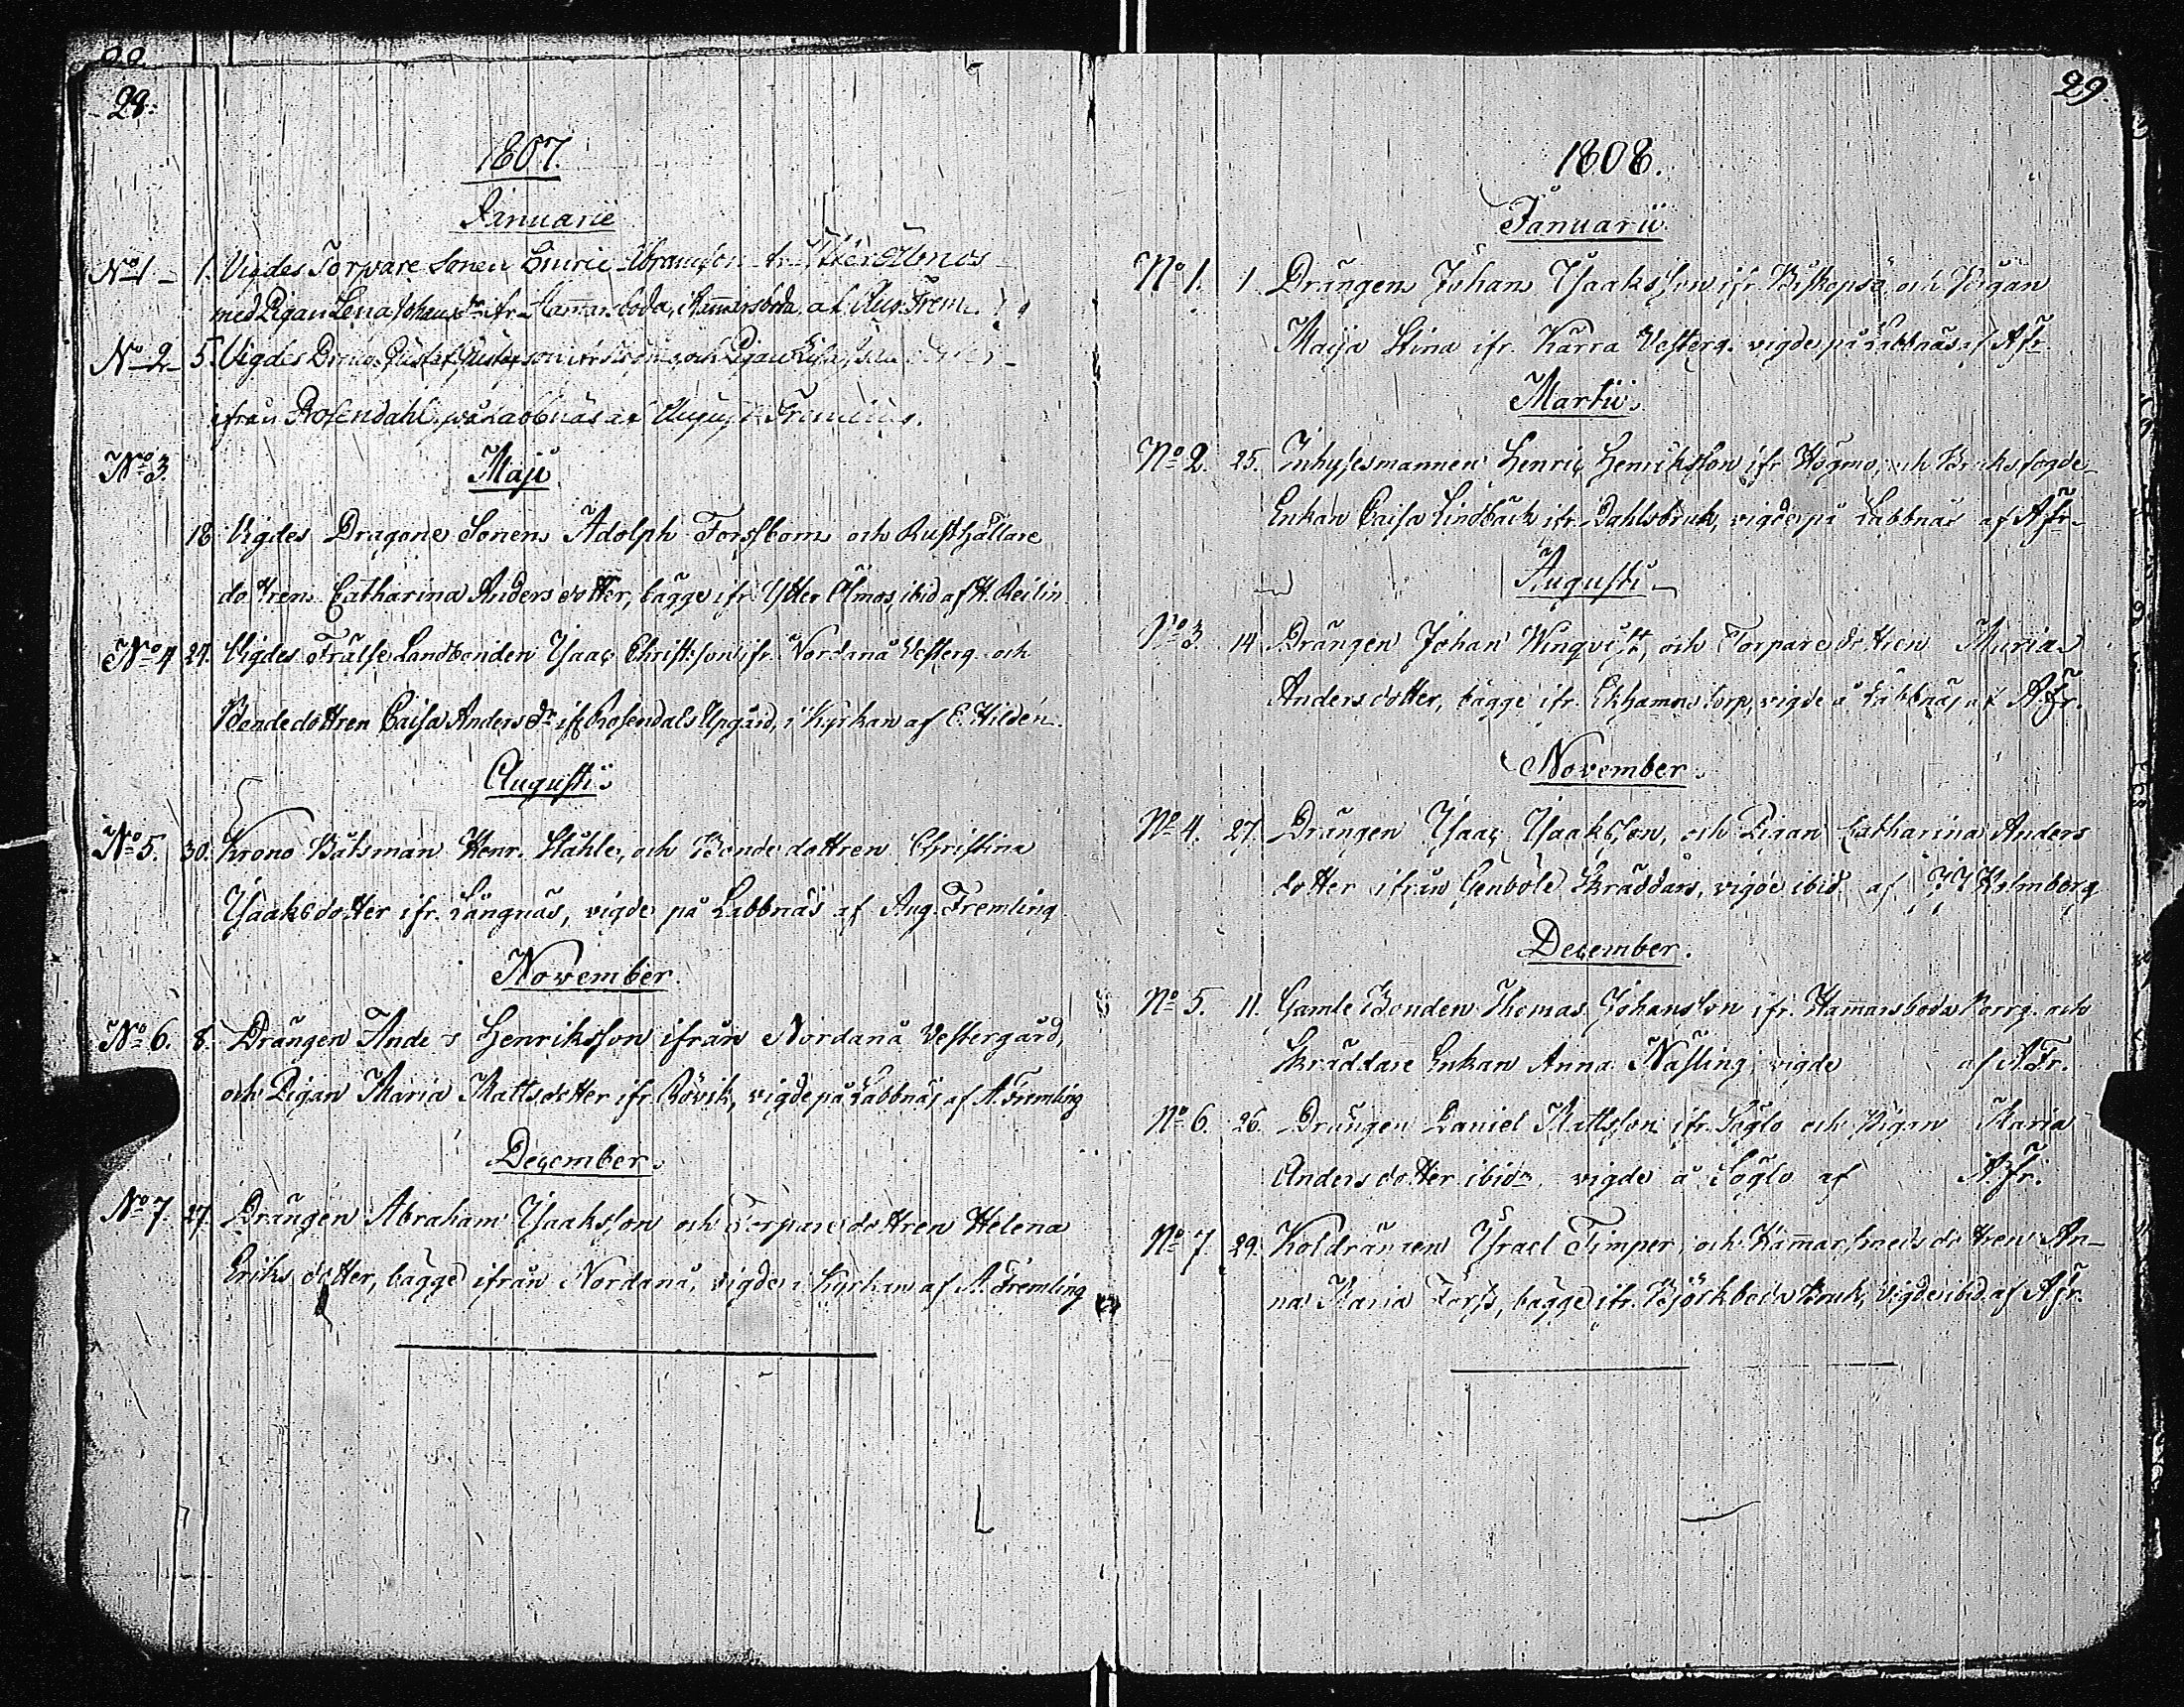 28.
1807.
Januarii
No 1. 1. Vigdes Torpare Sonen Henric Abramsson ifr. Ytter Ölmos
med Pigan Lena Johans dr ifr. Hammarsboda, i Hammarsboda af Aug. Frem.
No 2 5. Vigdes Dräng. Gustaf Gustafsson och Pigan Lisa
ifrån Rosendahl, på Labbnäs af August Fremling.
No 3. Maji
18 Vigdes Dragone Sonen Adolph Forssbom och Rusthållare
dottren Catharina Andersdotter, bägge ifr. Ytter Ölmos, ibid af H. Reilin
No 4 24. Vigdes Frälse Landbonden Isaac Christsson ifr. Nordanå Vesterg. och
Bondedottren Caisa Anders dr ifr. Rosendals Upgård, i Kyrkan af E. Hildén.
Augusti.
No 5. 30. Krono Båtsman Henr. Ståhle, och Bonde dottren Christina
Isaaksdotter ifr. Långnäs, vigde på Labbnäs af Aug. Fremling
November.
No 6. 8. Drängen Anders Henriksson ifrån Nordanå Vestergård,
och Pigan Maria Mattsdotter ifr. Rövik, vigde på Labbnäs af A. Fremling
December.
No 7. 27. Drängen Abraham Isaaksson och Torpare dottren Helena
Eriks dotter, bägge ifrån Nordanå, vigde i Kyrkan af A. Fremling
29.
1808.
Januarii
No 1. 1. Drängen Johan Isaaksson ifr. Biskopsö och Pigan
Maija Stina ifr. Kärra Vesterg. vigde på Labbnäs af A fr.
Martii.
No 2. 25. Inhysesmannen Henric Henriksson ifr. Högmo, och Bruksfogde
Enkan Caisa Lindbäck ifr. Dahlsbruk, vigde på Labbnäs af A fr.
Augusti
No 3. 14 Drängen Johan Winqvist, och Torpare dottren Maria
Anders dotter, bägge ifr. Ekhamns torp, vigde å Labbnäs af A. Fr.
November.
No 4. 27. Drängen Isaac Isaaksson, och Pigan Catharina Anders
dotter ifrån Genböle Skräddars, vigde ibid. af Holmborg
December.
No 5. 11. Gamle Bonden Thomas Johansson ifr. Hammarsboda Norrg. och
Skräddare Enkan Anna Näsling vigde af A. Fr.
No 6. 26. Drängen Daniel Mattsson ifr. Söglo och Pigan Maria
Anders dotter ibidm. vigde å Söglo af A. Fr.
No 7. 29. Koldrängen Israel Timper, och Hammarsmeds dottren An-
na Maria Forss, bägge ifr. Björkboda Bruk, Vigde ibid. af A fr.